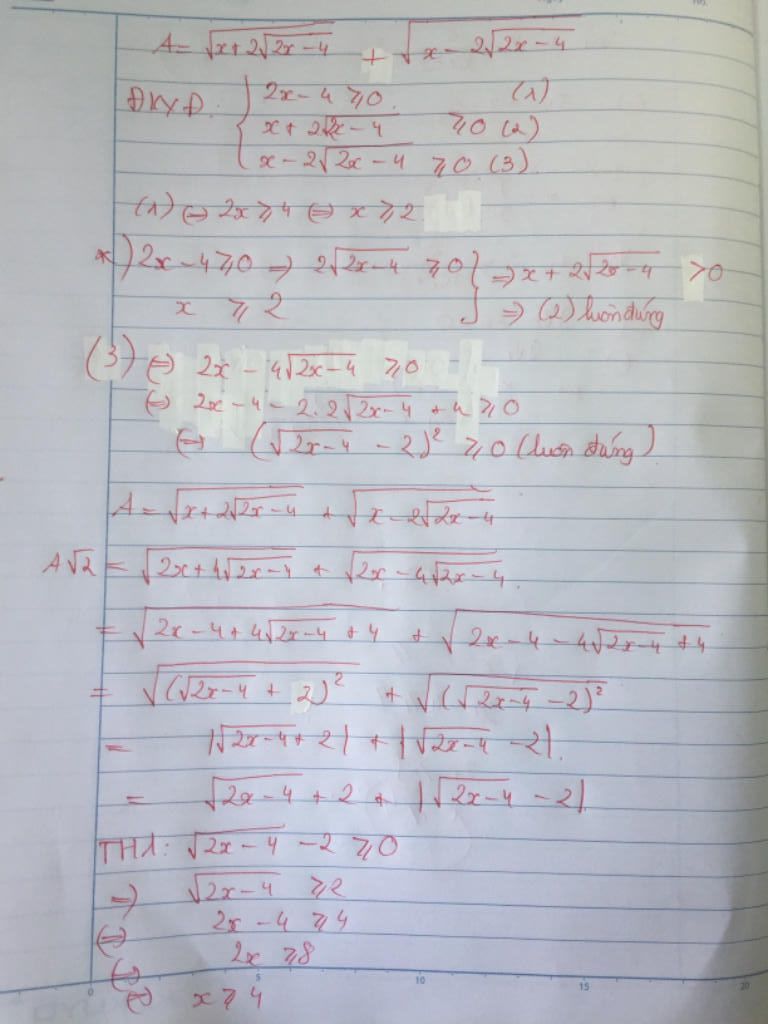 A = √(x + 2√(2x-4)) + √(x - 2√(2x-4))
ĐKXĐ: { 2x - 4 ⩾ 0. (1)
x + 2√(2x-4) ⩾ 0 (2)
x - 2√(2x-4) ⩾ 0 (3)
(1) ⇔ 2x ⩾ 4 ⇔ x ⩾ 2
*) 2x - 4 ⩾ 0 ⇒ 2√(2x-4) ⩾ 0 } ⇒ x + 2√(2x-4) > 0
x ⩾ 2 ⇒ (2) luôn đúng
(3) ⇔ 2x - 4√(2x-4) ⩾ 0
⇔ 2x - 4 - 2.2√(2x-4) + 4 ⩾ 0
⇔ (√(2x-4) - 2)² ⩾ 0 (luôn đúng)
A = √(x + 2√(2x-4)) + √(x - 2√(2x-4))
A√2 = √(2x + 4√(2x-4)) + √(2x - 4√(2x-4)).
= √(2x - 4 + 4√(2x-4) + 4) + √(2x - 4 - 4√(2x-4) + 4)
= √((√(2x-4) + 2)²) + √((√(2x-4) - 2)²)
= |√(2x-4) + 2| + |√(2x-4) - 2|.
= √(2x-4) + 2 + |√(2x-4) - 2|
TH1: √(2x-4) - 2 ⩾ 0
⇒ √(2x-4) ⩾ 2
⇔ 2x - 4 ⩾ 4
⇔ 2x ⩾ 8
⇔ x ⩾ 4
0 5 10 15 20